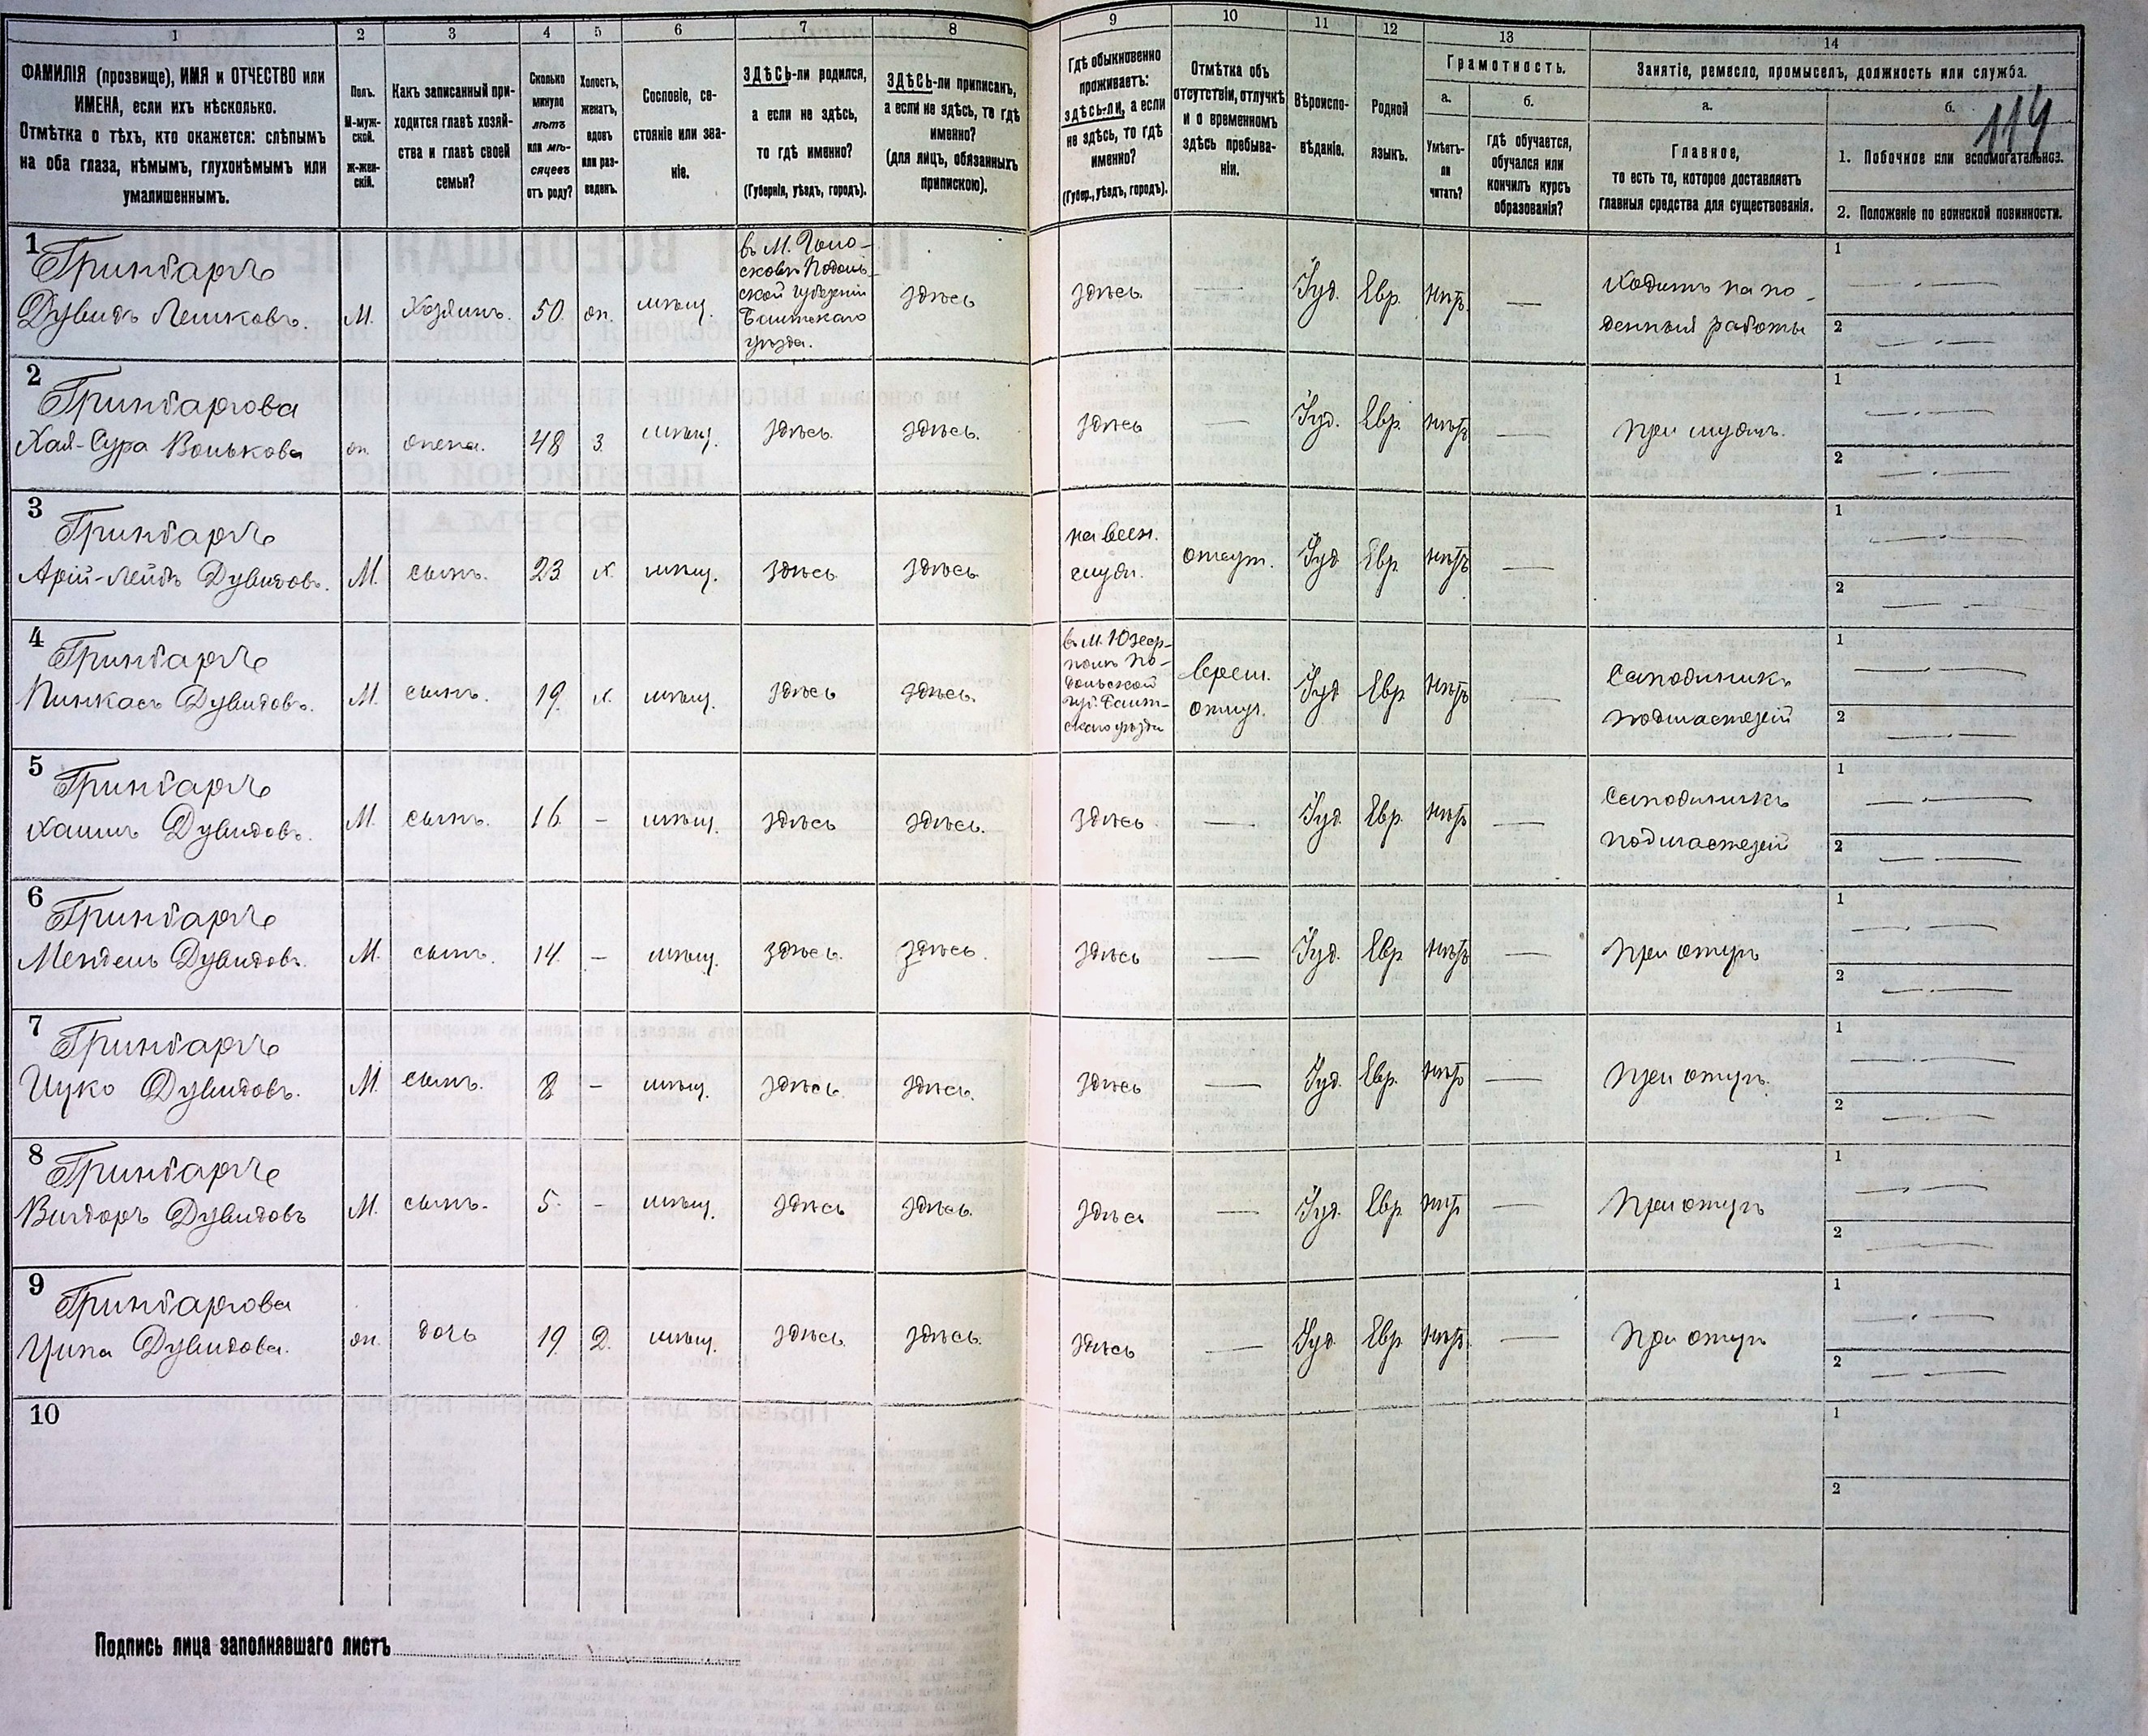 1
2
3
4
5
6
7
8
9
10
11
12
13
14
ФАМИЛІЯ (прозвище), ИМЯ и ОТЧЕСТВО или
ИМЕНА, если ихъ нѣсколько.
Отмѣтка о тѣхъ, кто окажется: слѣпымъ
на оба глаза, нѣмымъ, глухонѣмымъ или
умалишеннымъ.
Полъ.
М-муж-
ской.
Ж-жен-
скій.
Какъ записанный при-
ходится главѣ хозяй-
ства и главѣ своей
семьи?
Сколько
минуло
лѣтъ
или мѣ-
сяцевъ
отъ роду?
Холостъ,
женатъ,
вдовъ
или раз-
веденъ.
Сословіе, со-
стояніе или зва-
ніе.
ЗДѢСЬ-ли родился,
а если не здѣсь,
то гдѣ именно?
(Губернія, уѣздъ, городъ).
ЗДѢСЬ-ли приписанъ,
а если не здѣсь, то гдѣ
именно?
(для лицъ, обязанныхъ
припискою).
Гдѣ обыкновенно
проживаетъ:
здѣсь-ли, а если
не здѣсь, то гдѣ
именно?
(Губер., уѣздъ, городъ).
Отмѣтка объ
отсутствіи, отлучкѣ
и о временномъ
здѣсь пребыва-
ніи.
Вѣроиспо-
вѣданіе.
Родной
языкъ.
Грамотность.
а.
б.
Умѣетъ-
ли
читать?
гдѣ обучается,
обучался или
кончилъ курсъ
образованія?
Занятіе, ремесло, промыселъ, должность или служба.
а.
б.
114
Главное,
то есть то, которое доставляетъ
главныя средства для существованія.
1. Побочное или вспомогательное.
2. Положеніе по воинской повинности.
1
Гринбаргъ
Дувидъ Лейковъ. М. Хозяинъ. 50. жн. мѣщ.
въ М. Голо-
сковѣ Подоль-
ской губерніи
Балтскаго
уѣзда.
здѣсь здѣсь. — Іуд. Евр. нѣтъ —
Ходитъ на по-
денныя работы
1
2
2
Гринбаргова
Хая-Сура Волькова жн. жена. 48 З. мѣщ. здѣсь. здѣсь. здѣсь — Іуд. Евр. нѣтъ — при мужѣ.
1
2
3
Гринбаргъ
Арій-Лейбъ Дувидовъ. М. сынъ. 23 х. мѣщ. здѣсь здѣсь.
на воен.
служ.
отсут. Іуд Евр. нѣтъ —
1
2
4
Гринбаргъ
Пинкасъ Дувидовъ. М. сынъ. 19. х. мѣщ. здѣсь здѣсь.
въ М. Юзеф-
полѣ По-
дольской
губ. Балт-
скаго уѣзда
врем.
отлуч.
Іуд Евр нѣтъ —
Сапожникъ
подмастерій
1
2
5
Гринбаргъ
Хаимъ Дувидовъ. М. сынъ. 16 – мѣщ. здѣсь здѣсь. здѣсь — Іуд. Евр. нѣтъ —
Сапожникъ
подмастерій
1
2
6
Гринбаргъ
Мендель Дувидовъ. М. сынъ. 14. – мѣщ. здѣсь. здѣсь. здѣсь — Іуд. Евр нѣтъ — при отцѣ
1
2
7
Гринбаргъ
Ицко Дувидовъ. М. сынъ. 8 – мѣщ. здѣсь. здѣсь. здѣсь — Іуд. Евр. нѣтъ — при отцѣ.
1
2
8
Гринбаргъ
Дувидовъ М. сынъ. 5. – мѣщ. здѣсь здѣсь здѣсь — Іуд. Евр. нѣтъ — при отцѣ
1
2
9
Гринбаргова
Ципа Дувидова. жн. дочь 19 Д. мѣщ. здѣсь здѣсь. здѣсь — Іуд. Евр. нѣтъ. — при отцѣ
1
2
10
1
2
Подпись лица заполнявшаго листъ